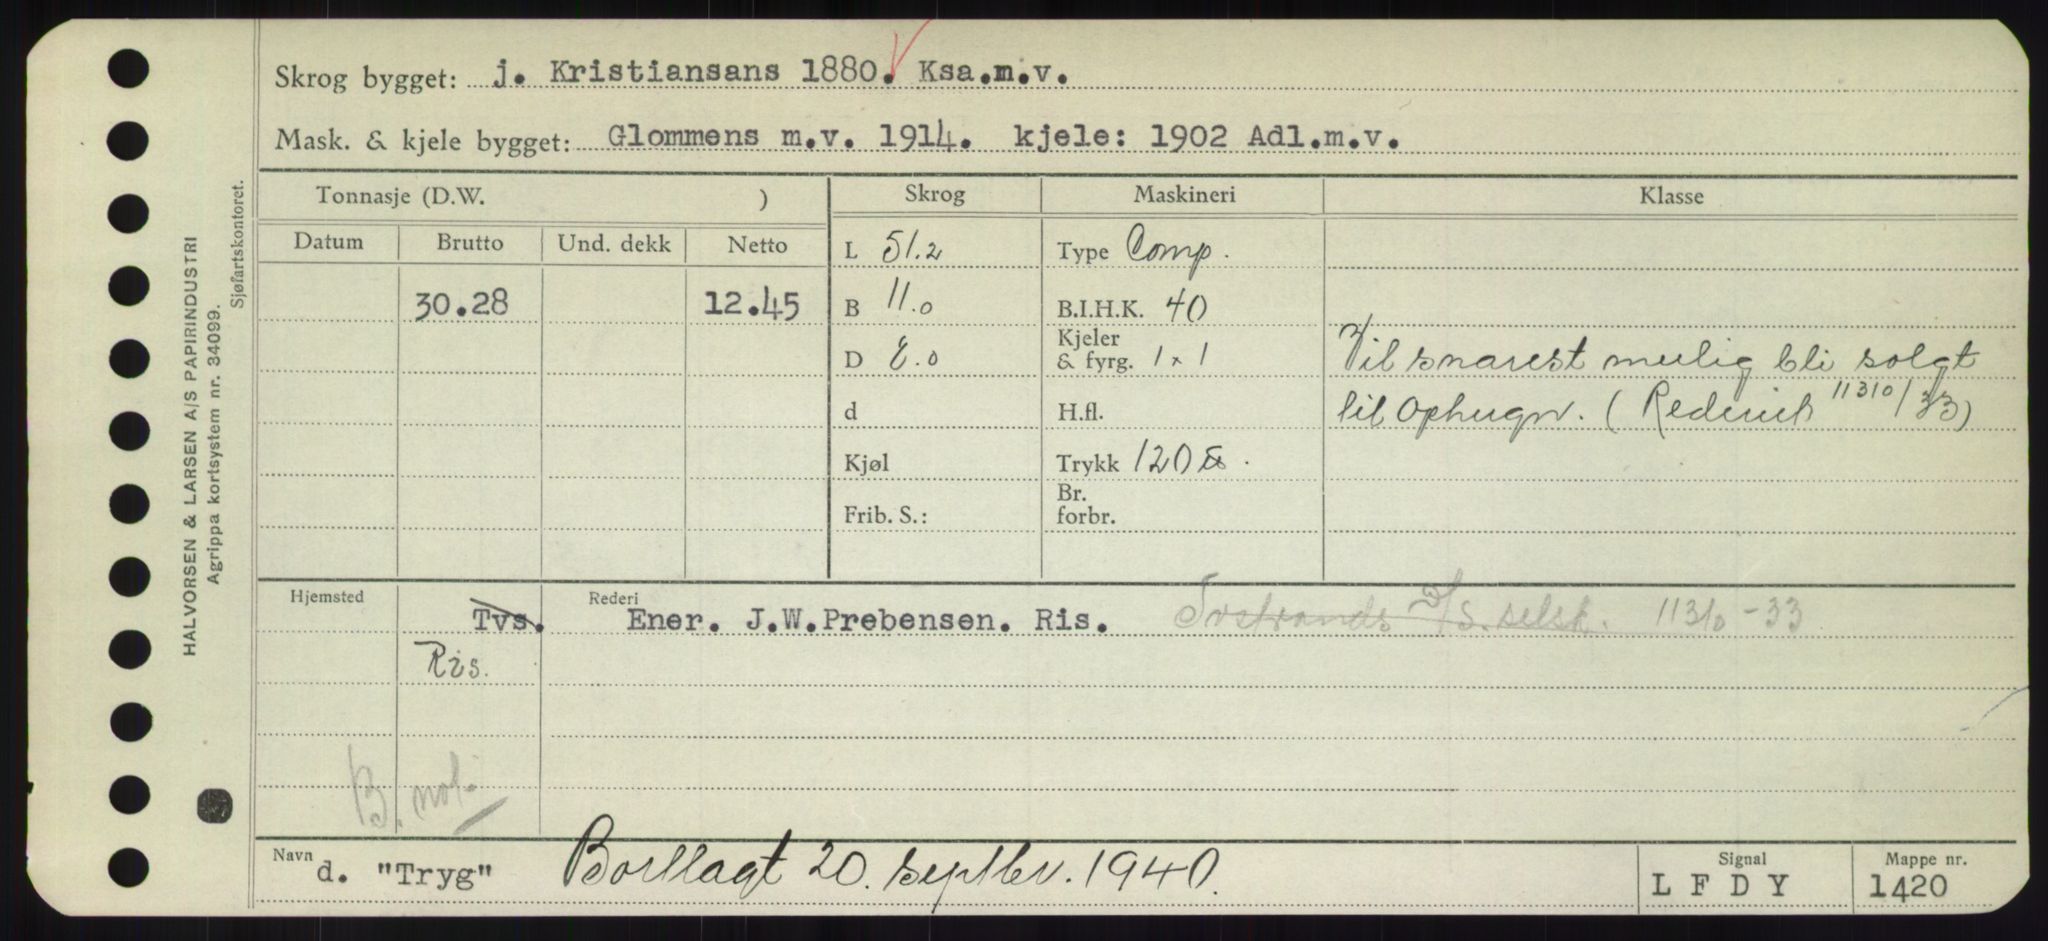 Skrog bygget: j. Kristiansans 1880. Ksa.m.v.
Mask. & kjele bygget: Glommens m.v. 1914. kjele: 1902 Adl.m.v.
Tonnasje (D.W. ) Skrog Maskineri Klasse
Datum Brutto Und. dekk Netto
L 51.2 Type Comp.
30.28 12.45 B 11.0 B.I.H.K. 40
D 8.0 Kjeler & fyrg. 1 x 1 Vil snarest mulig bli solgt
d H.fl. til ophugn. (Rederiet 11310/33)
Kjøl Trykk 120 lbs.
Frib. S.: Br. forbr.
Hjemsted Rederi
Tvs. Ener. J.W.Prebensen. Ris. Tvstrands D/S. selsk. 113/0-33
Ris.
B. not.
Navn d. "Tryg" Bortlagt 20. septbr. 1940.
Signal L F D Y
Mappe nr. 1420
HALVORSEN & LARSEN A/S PAPIRINDUSTRI
Agrippa kortsystem nr. 34099.
Sjøfartskontoret.